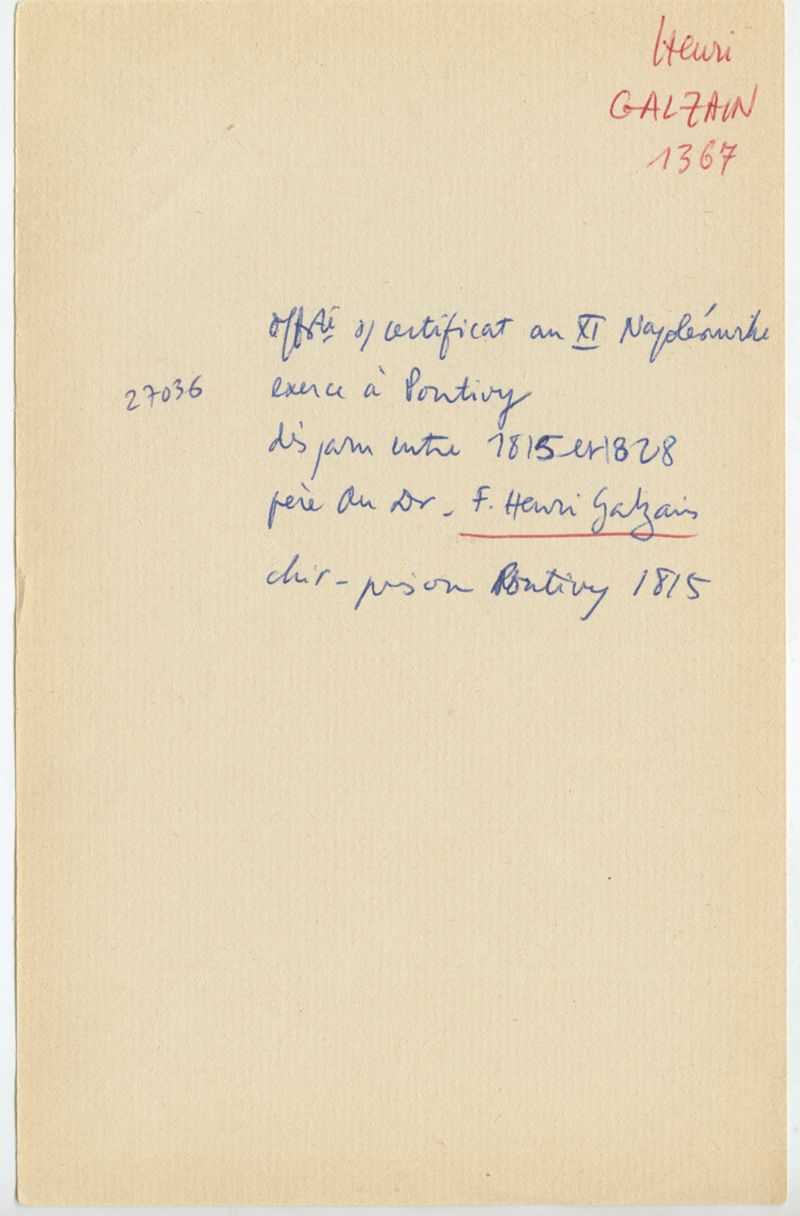 Henri
GALZAIN
1367
s/ certificat an XI Napoléonville
27036
exerce à Pontivy
disparu entre 1815 et 1828
père du Dr - F. Henri Galzain
chir - prison Pontivy 1815